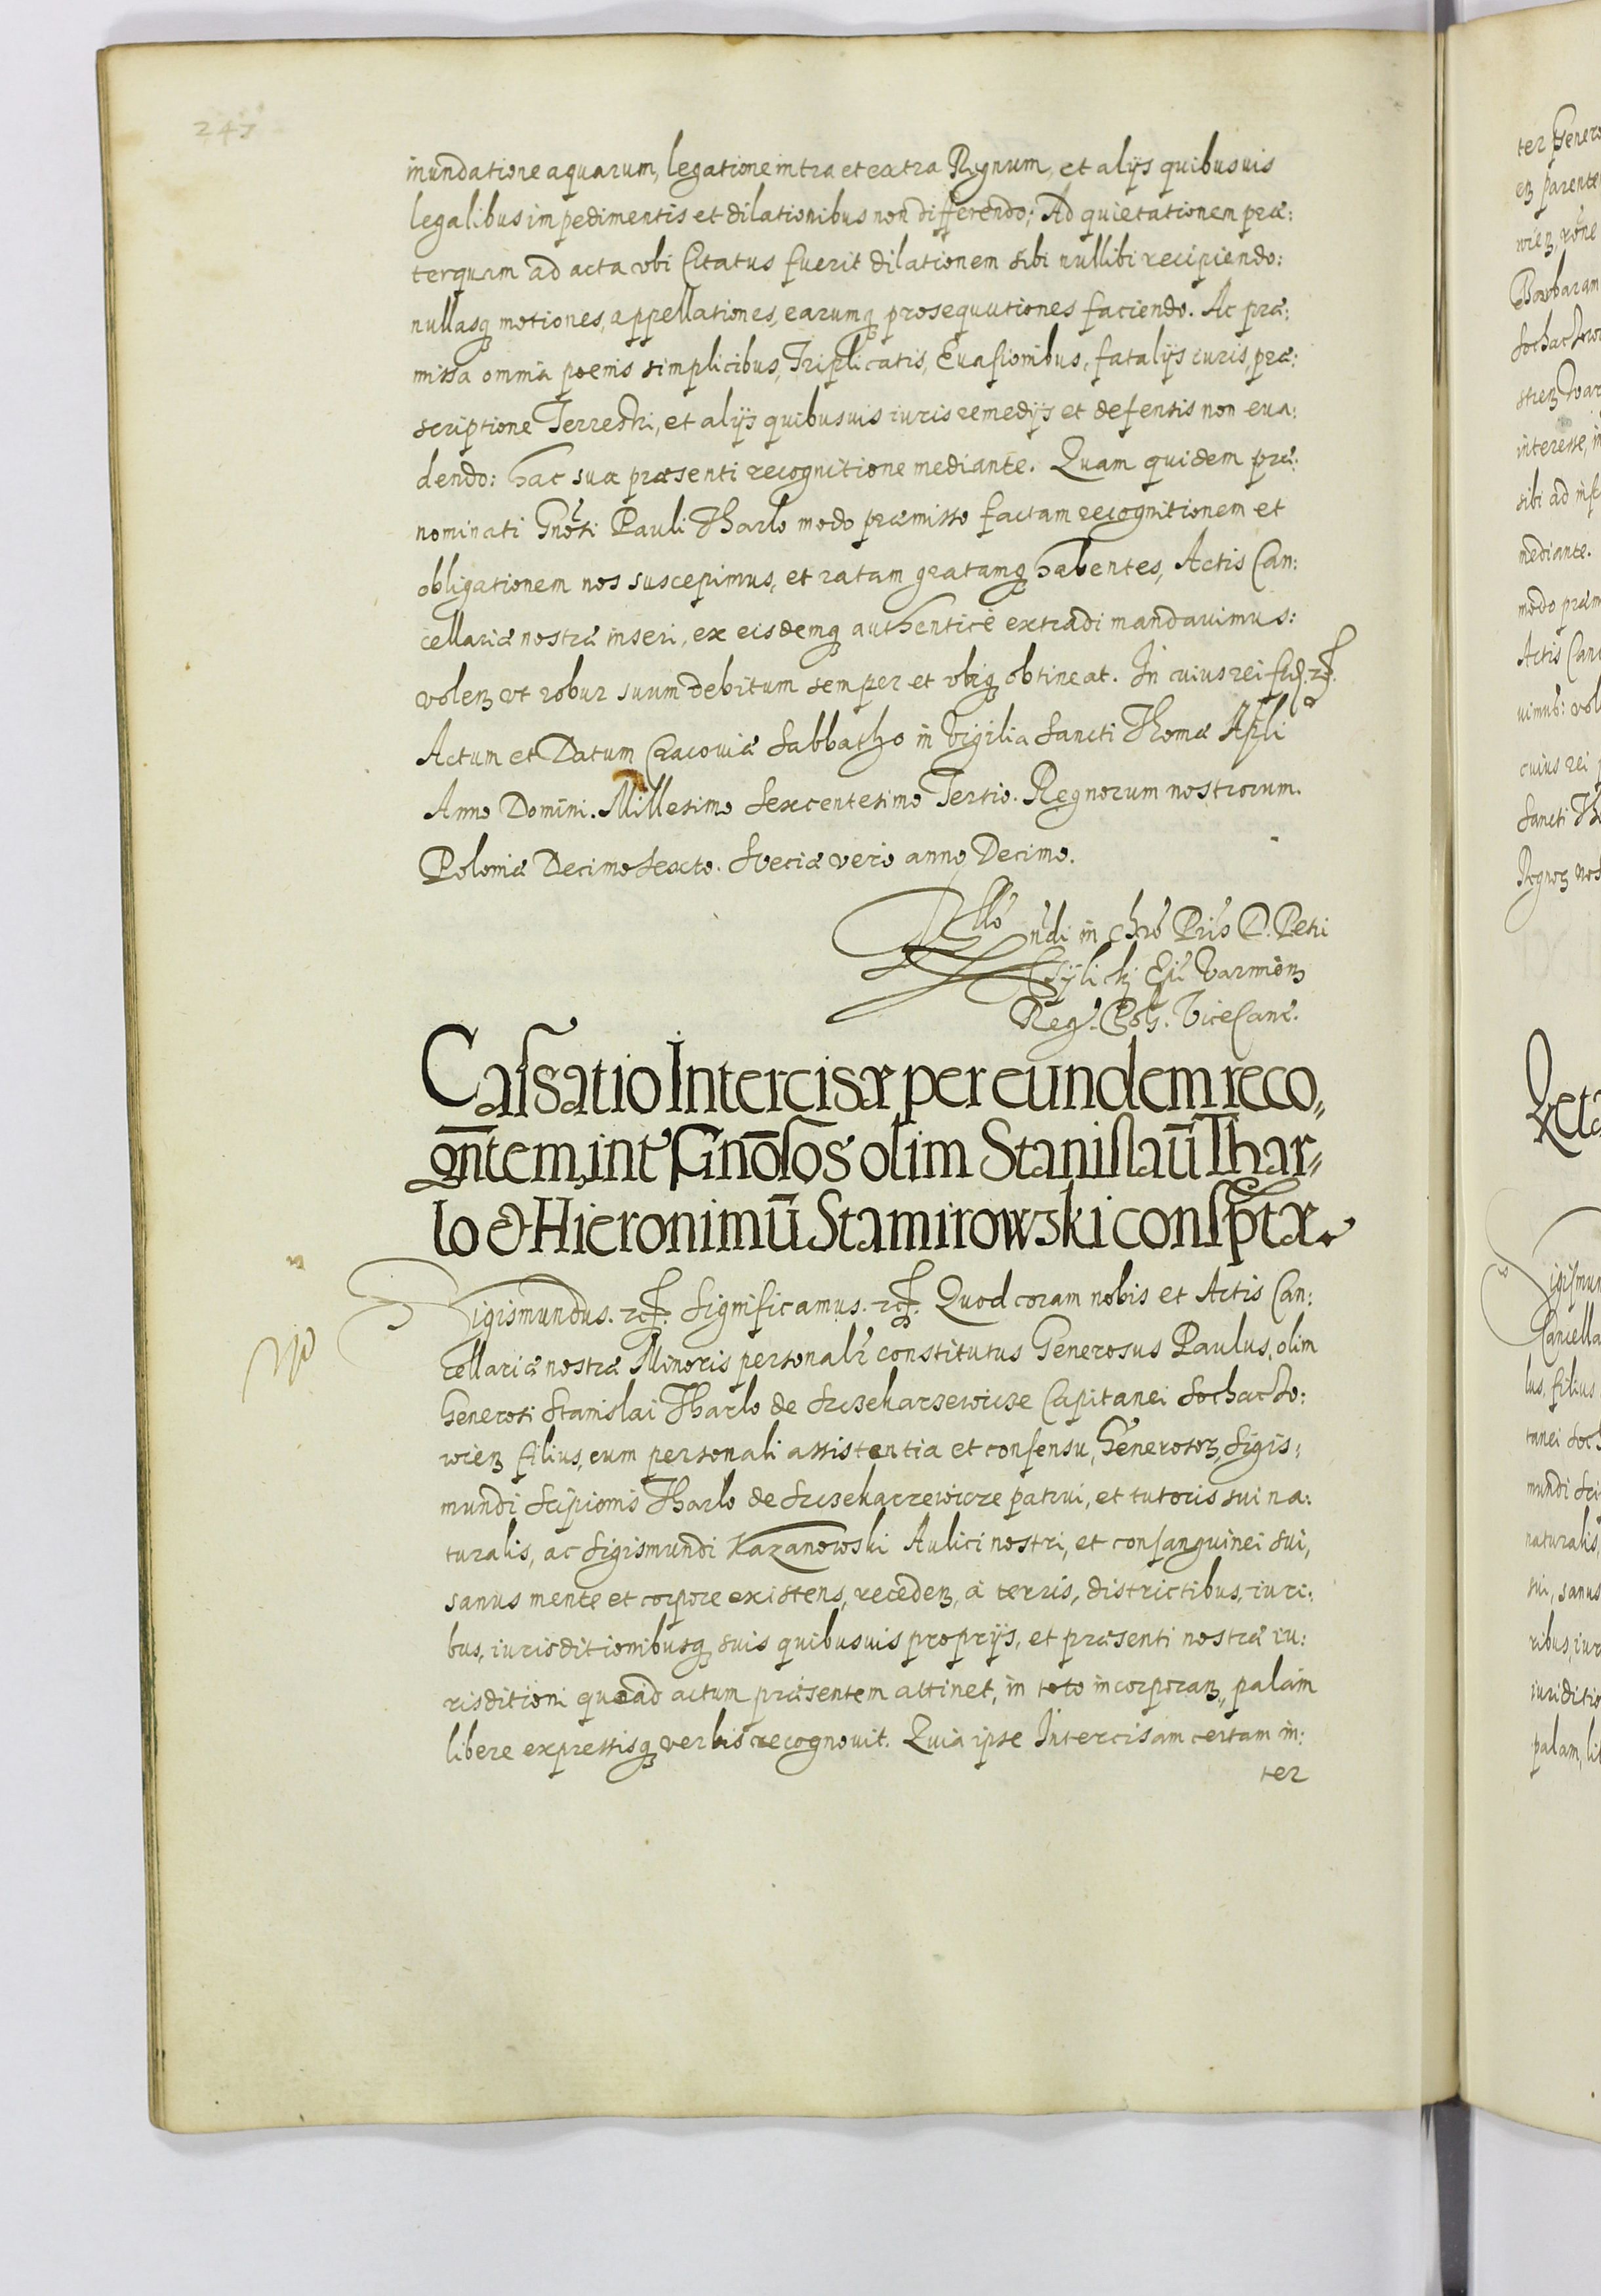 inundatione aquarum, legatione intra et extra Regnum, et alijs quibusuis
legalibus impedimentis et dilationibus non differendo; Ad quietationem præ:
terquam ad acta vbi Citatus fuerit dilationem sibi nullibi recipiendo:
nullasq motiones, appellationes, earumq prosequutiones faciendo. Ac præ:
missa omnia poenis simplicibus, Triplicatis, Euasionibus, fatalijs iuris, præ:
scriptione Terrestri, et alijs quibusuis iuris remedijs et defensis non eua:
dendo: hac sua præsenti recognitione mediante. Quam quidem præ:
nominati Gnosi Pauli Tharlo modo præmisso factam recognitionem et
obligationem nos suscepimus, et ratam gratamq habentes, Actis Can:
cellariæ nostræ inseri, ex eisdemq authenticè extradi mandauimus:
volen vt robur suum debitum semper et vbiq obtineat. In cuius rei fid. etc.
Actum et Datum Cracouiæ Sabbatho in Vigilia Sancti Thomæ Apli
Anno Domini. Millesimo Sexcentesimo Tertio. Regnorum nostrorum.
Poloniæ Decimo Sexto. Sueciæ vero anno Decimo.
Rllo ndi in Chro Pris D. Petri
Tylicki Epi Varmien
Regn. Pol. ViceCanc.
Cassatio Intercisæ per eundem reco„
gntem, int Gnosos olim Stanislaū Thar„
lo & Hieronimū Stamirowski conscptæ.
Sigismundus. etc. Significamus. etc. Quod coram nobis et Actis Can:
cellariæ nostræ Minoris personalr constitutus Generosus Paulus, olim
Generosi Stanislai Tharlo de Sczekarzewicze Capitanei Sochaczo:
wien filius, cum personali assistentia et consensu, Generosor, Sigis:
mundi Scipionis Tharlo de Sczekarzewicze patrui, et tutoris sui na:
turalis, ac Sigismundi Kazanowski Aulici nostri, et consanguinei sui,
sanus mente et corpore existens, receden, à terris, districtibus, iuri:
bus, iurisditionibusq suis quibusuis proprijs, et præsenti nostræ iu:
risditioni quoad actum præsentem attinet, in toto incorporan, palam
libere expressisq verbis recognouit. Quia ipse Intercisam certam in:
ter